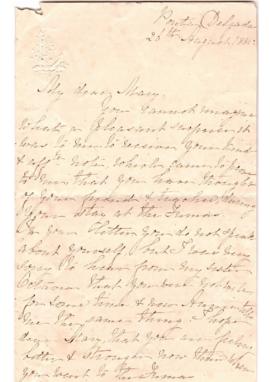 Ponta Delgada
26th August 188
My dear Mary.
You cannot imagine
what a pleasant surprise it
was to me to receive your kind
& affte note, which came to prove
to me that you have thought
of your friends
your stay at the Furnas
In your letter you do not speak
about yourself, but I was very
sorry to hear from my sister
that you were not well
for some time & now
me the same thing. I hope
dear Mary that you are feeling
better & stronger now than when
you went to the Furnas